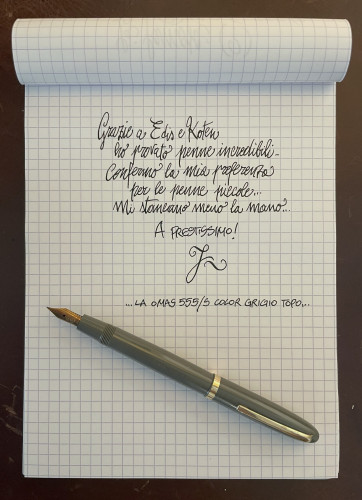 Grazie a Edis e Kofen
ho provato penne incredibili..
Confermo la mia preferenza
per le penne piccole...
Mi stancano meno la mano...
A PRESTISSIMO!
...LA OMAS 555/S COLOR GRIGIO TOPO...